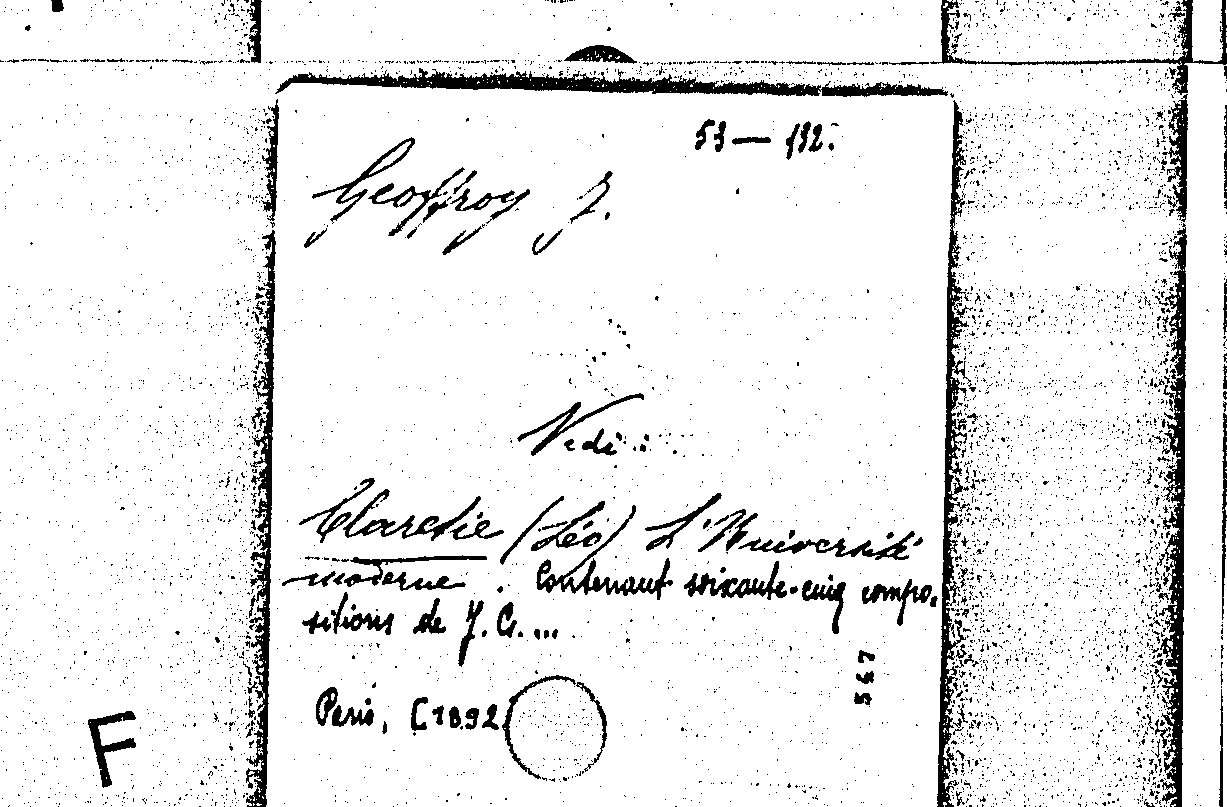 53 — 132.
Geoffroy J.
Vedi :
Claretie (Léo) L'Université
moderne. Contenant soixante-cinq compo-
sitions de J. G. ...
567
Paris, [1892]
F